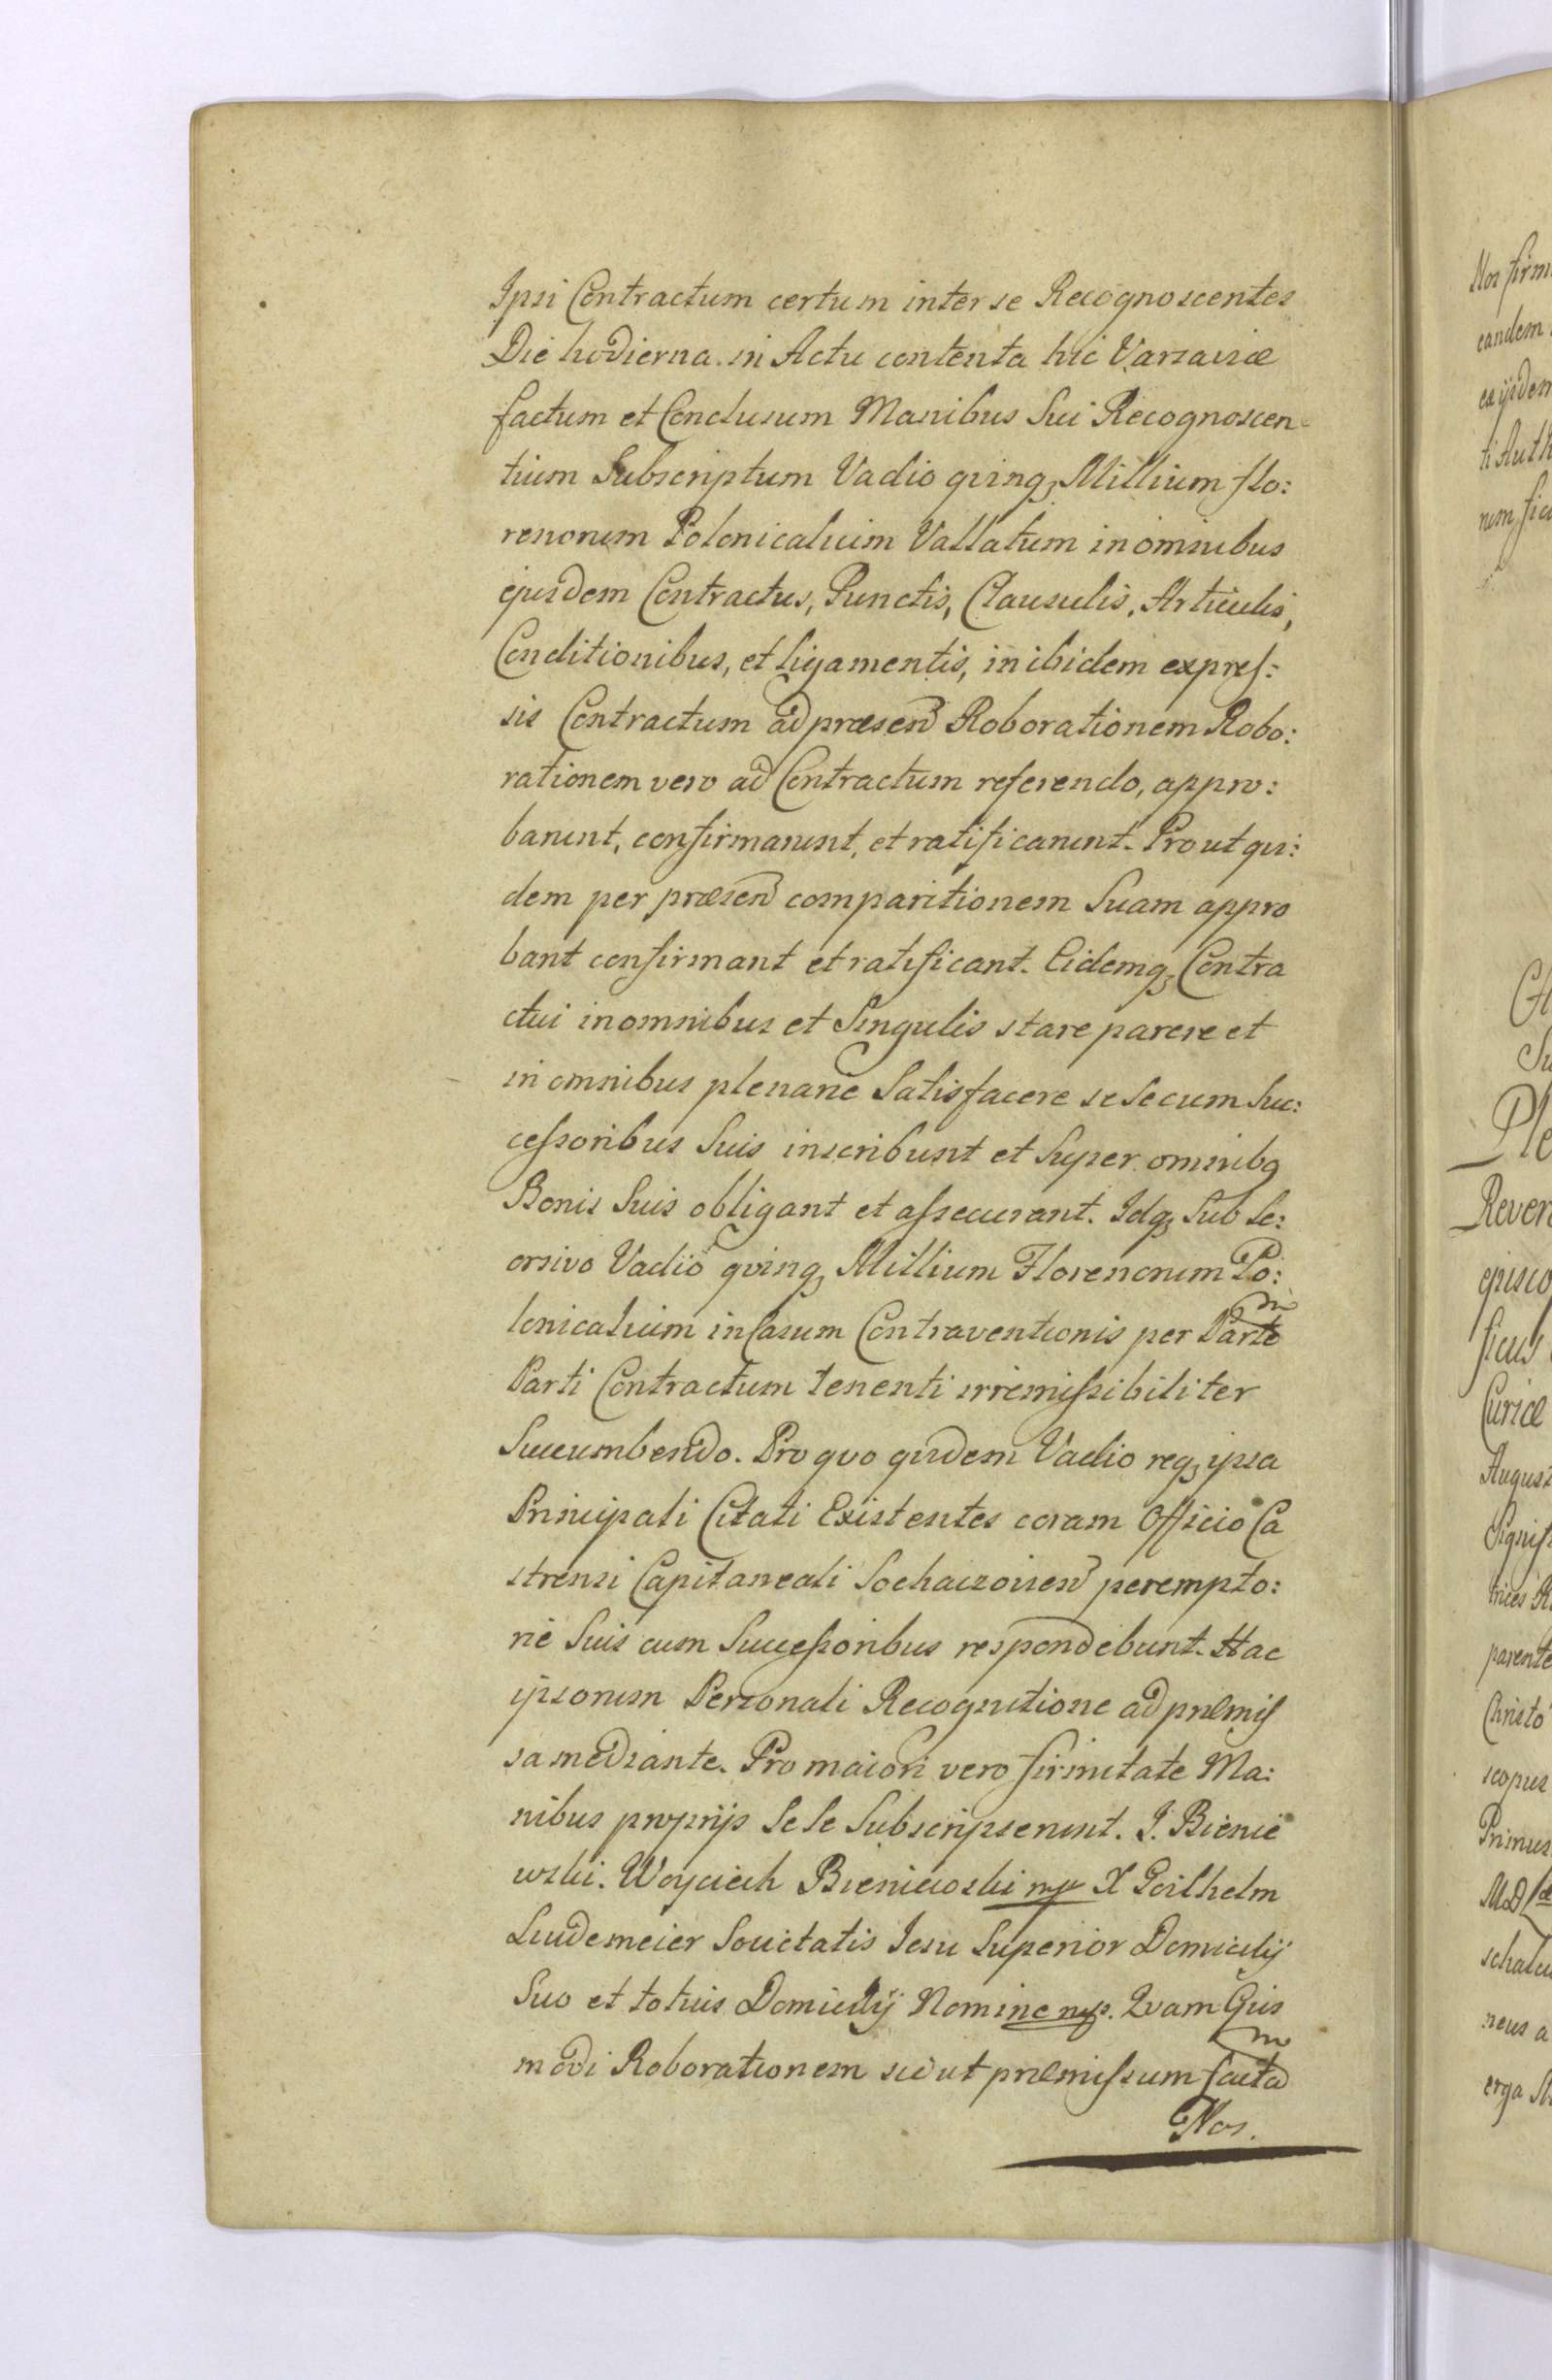 Ipsi Contractum certum inter se Recognoscentes
Die hodierna in Actu contenta hic Varsaviæ
factum et Conclusum Manibus Sui Recognoscen-
tium Subscriptum Vadio qvinq, Millium flo:
renorum Polonicalium Vallatum in omnibus
ejusdem Contractus, Punctis, Clausulis, Articulis,
Conditionibus, et Ligamentis, in ibidem expreſ:
sis Contractum ad præsen Roborationem Robo:
rationem vero ad Contractum referendo, appro:
barunt, confirmarunt, et ratificarunt. Prout qvi:
dem per præsen comparitionem Suam appro
bant confirmant et ratificant. Eidemq, Contra
ctui in omnibus et Singulis stare parere et
in omnibus plenarie Satisfacere se se cum Suc:
ceſsoribus Suis inscribunt et Super omnibq
Bonis Suis obligant et aſsecurant. Idq, Sub Se:
orsivo Vadio qvinq, Millium Florenorum Po:
lonicalium in Casum Contraventionis per Partem
Parti Contractum tenenti irremiſsibiliter
Succumbendo. Pro qvo qvidem Vadio req, ipsa
Principali Citati Existentes coram Officio Ca
strensi Capitaneali Sochaczovien perempto:
rie Suis cum Succeſsoribus respondebunt. Hac
ipsorum Personali Recognitione ad præmiſ
sa mediante. Pro maiori vero firmitate Ma:
nibus proprijs Se Se Subscripserunt. J. Bienie
wski. Woyciech Bieniewski mp X Goilhelm
Ludemeier Societatis Jesu Superior Domicilij
Suo et totius Domicilij Nomine mp. Qvam Ejus
modi Roborationem sic ut præmiſsum factam
Nos.
Nos firm
eandem
ex ijsdem
ti Auth
num sic
Ple
Revere
episco
ficus
Curiæ
August
Signiſ
trices
parente
Christo
scopus
Primus
schalcu
neus a
erga St